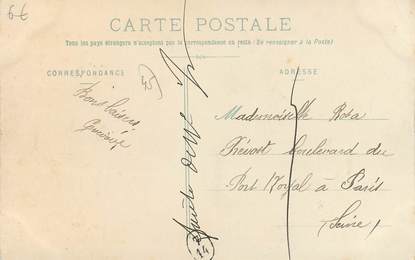 6€
CARTE POSTALE
Tous les pays étrangers n'acceptent pas la correspondance au recto (Se renseigner à la Poste)
CORRESPONDANCE
ADRESSE
45
Bons baisers
Mademoiselle Rosa
Prévost boulevard du
Port Royal à Paris
(Seine)